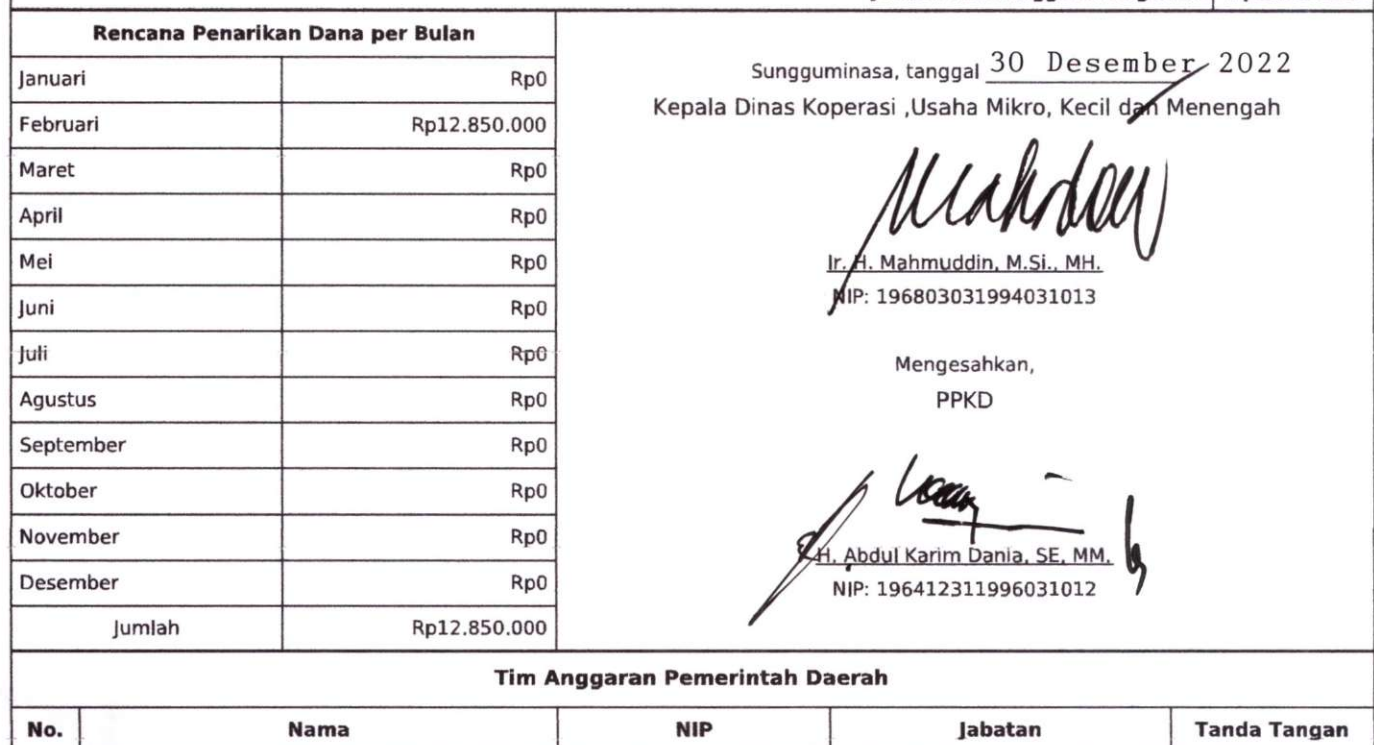 Rencana Penarikan Dana per Bulan
Januari Rp0
Februari Rp12.850.000
Maret Rp0
April Rp0
Mei Rp0
Juni Rp0
Juli Rp0
Agustus Rp0
September Rp0
Oktober Rp0
November Rp0
Desember Rp0
Jumlah Rp12.850.000
Sungguminasa, tanggal 30 Desember 2022
Kepala Dinas Koperasi ,Usaha Mikro, Kecil dan Menengah
Ir. H. Mahmuddin, M.Si., MH.
NIP: 196803031994031013
Mengesahkan,
PPKD
H. Abdul Karim Dania, SE, MM.
NIP: 196412311996031012
Tim Anggaran Pemerintah Daerah
No. Nama NIP Jabatan Tanda Tangan